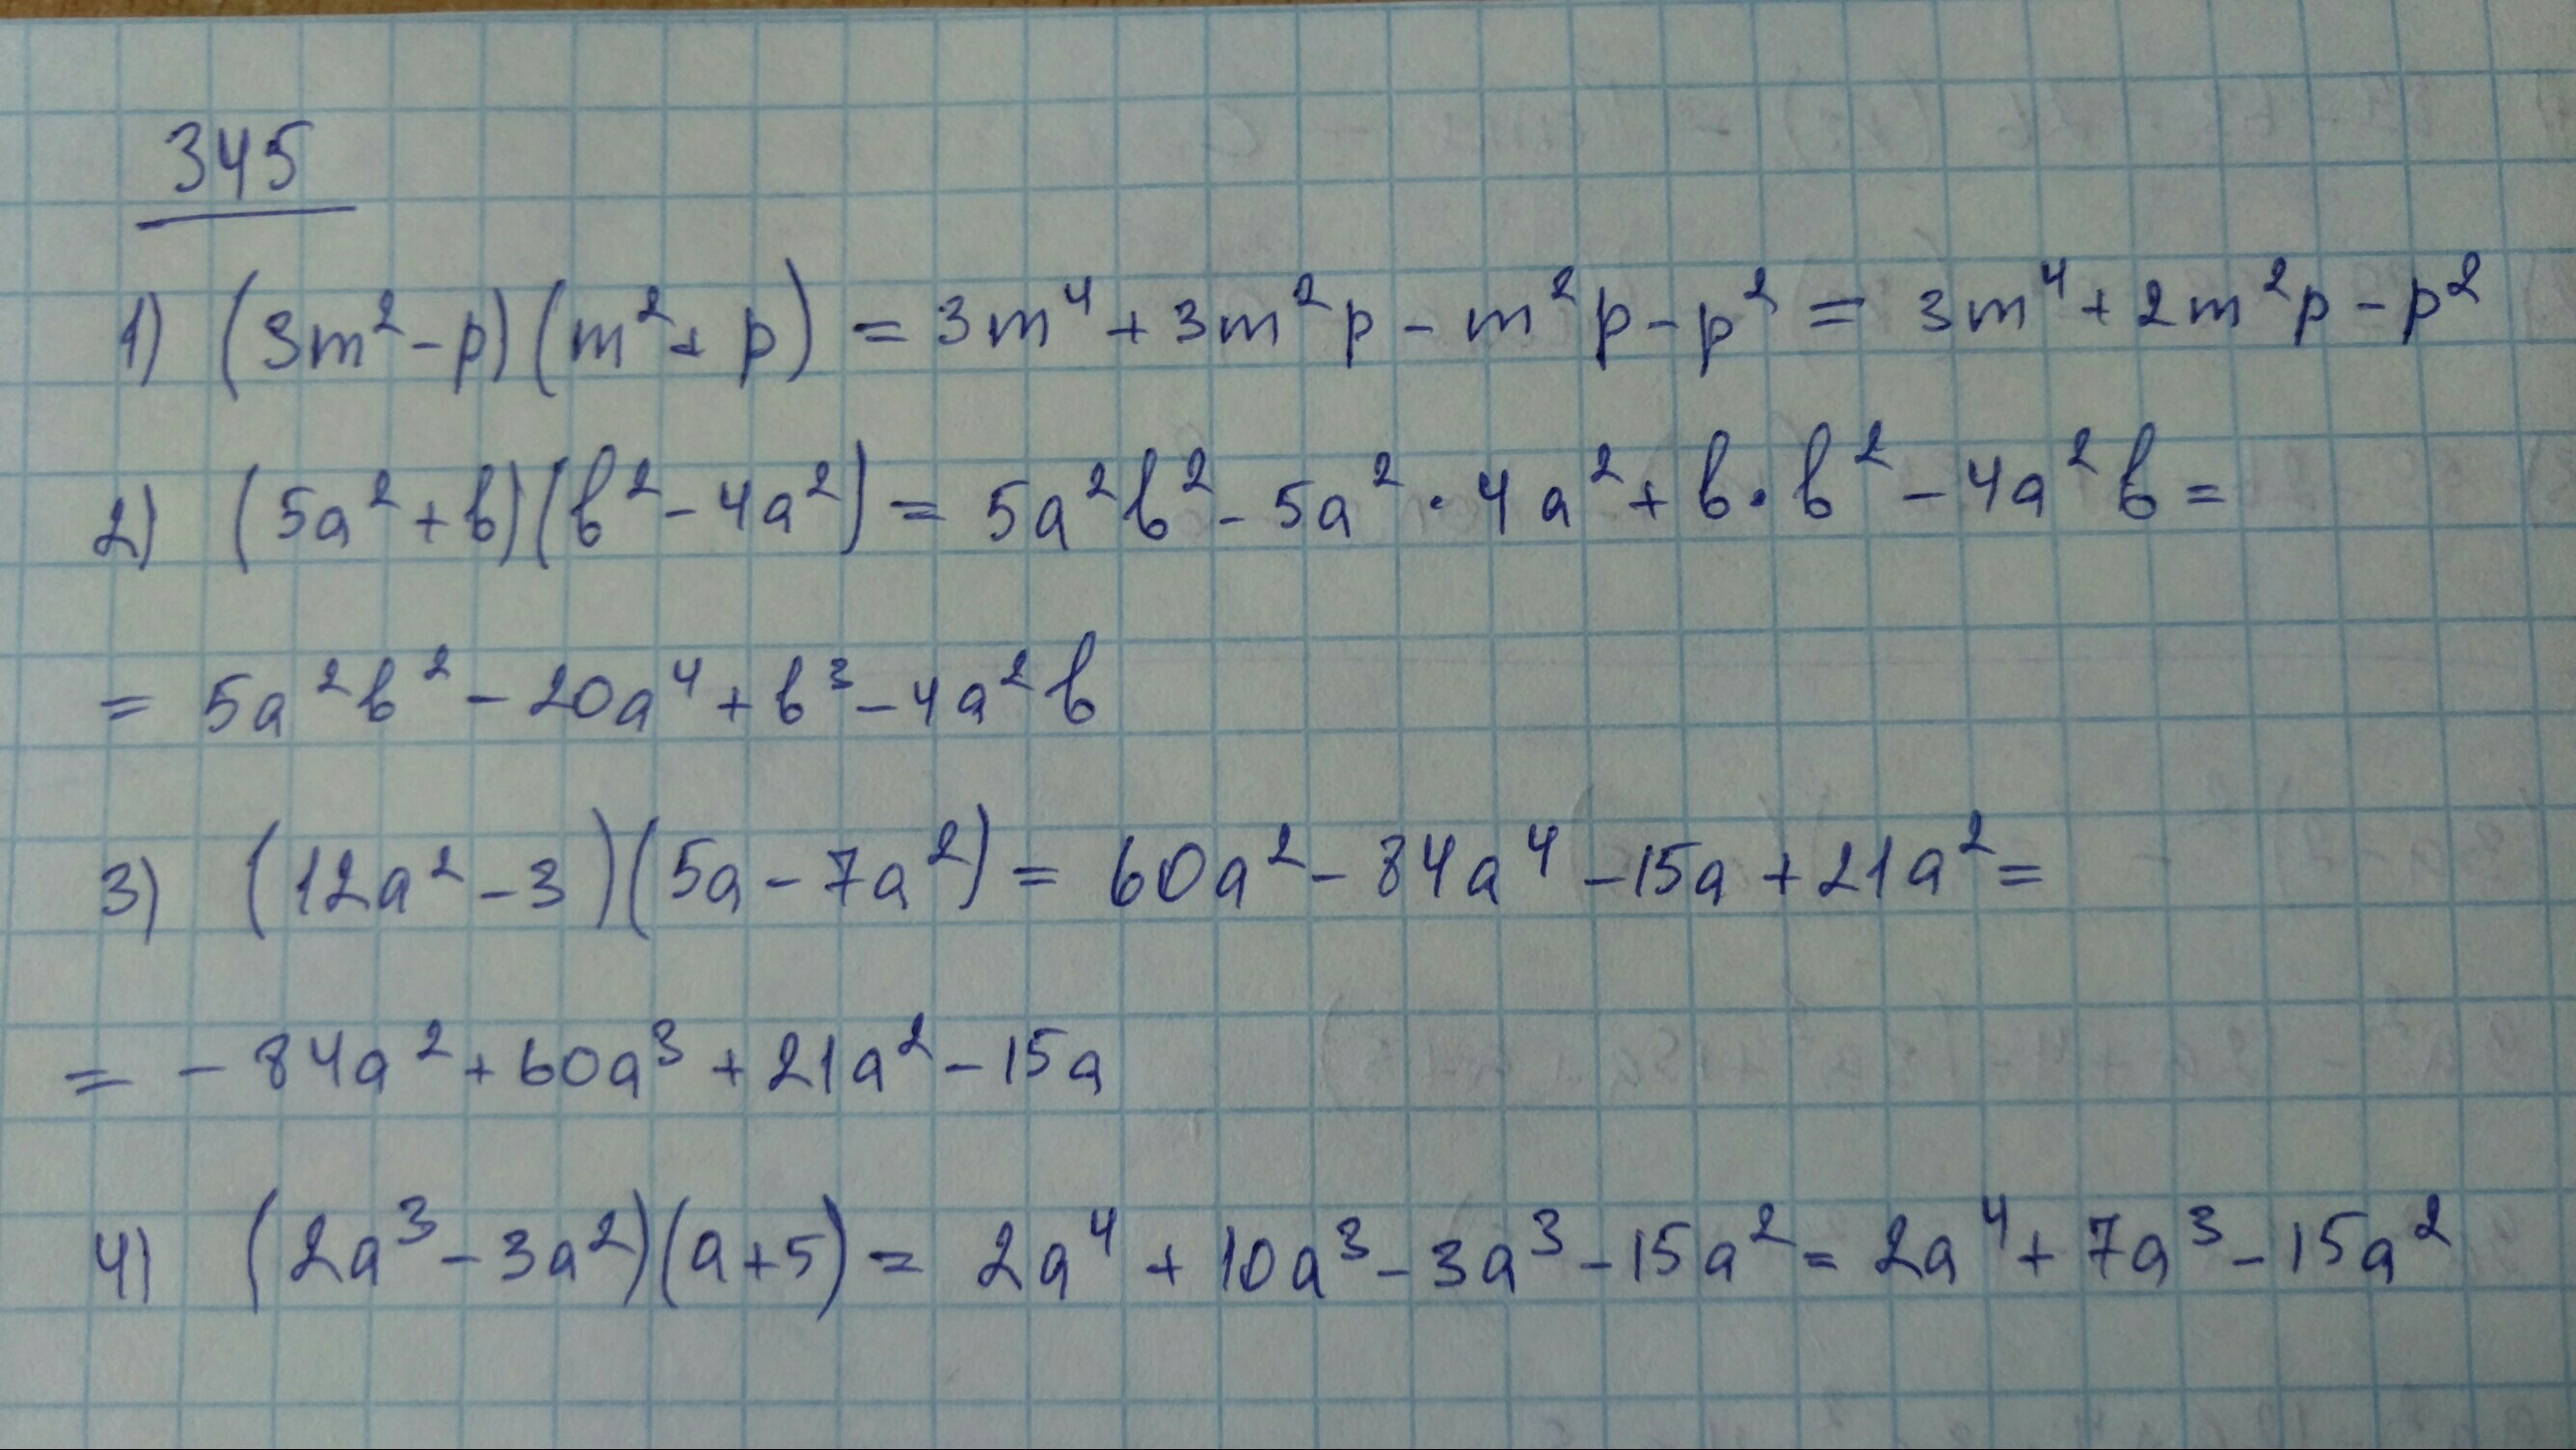 345
1) (3m²-p)(m²+p) = 3m⁴+3m²p-m²p-p² = 3m⁴+2m²p-p²
2) (5a²+b)(b²-4a²) = 5a²b²-5a²·4a²+b·b²-4a²b=
= 5a²b²-20a⁴+b³-4a²b
3) (12a²-3)(5a-7a²) = 60a²-84a⁴-15a+21a²=
= -84a²+60a³+21a²-15a
4) (2a³-3a²)(a+5) = 2a⁴+10a³-3a³-15a²=2a⁴+7a³-15a²